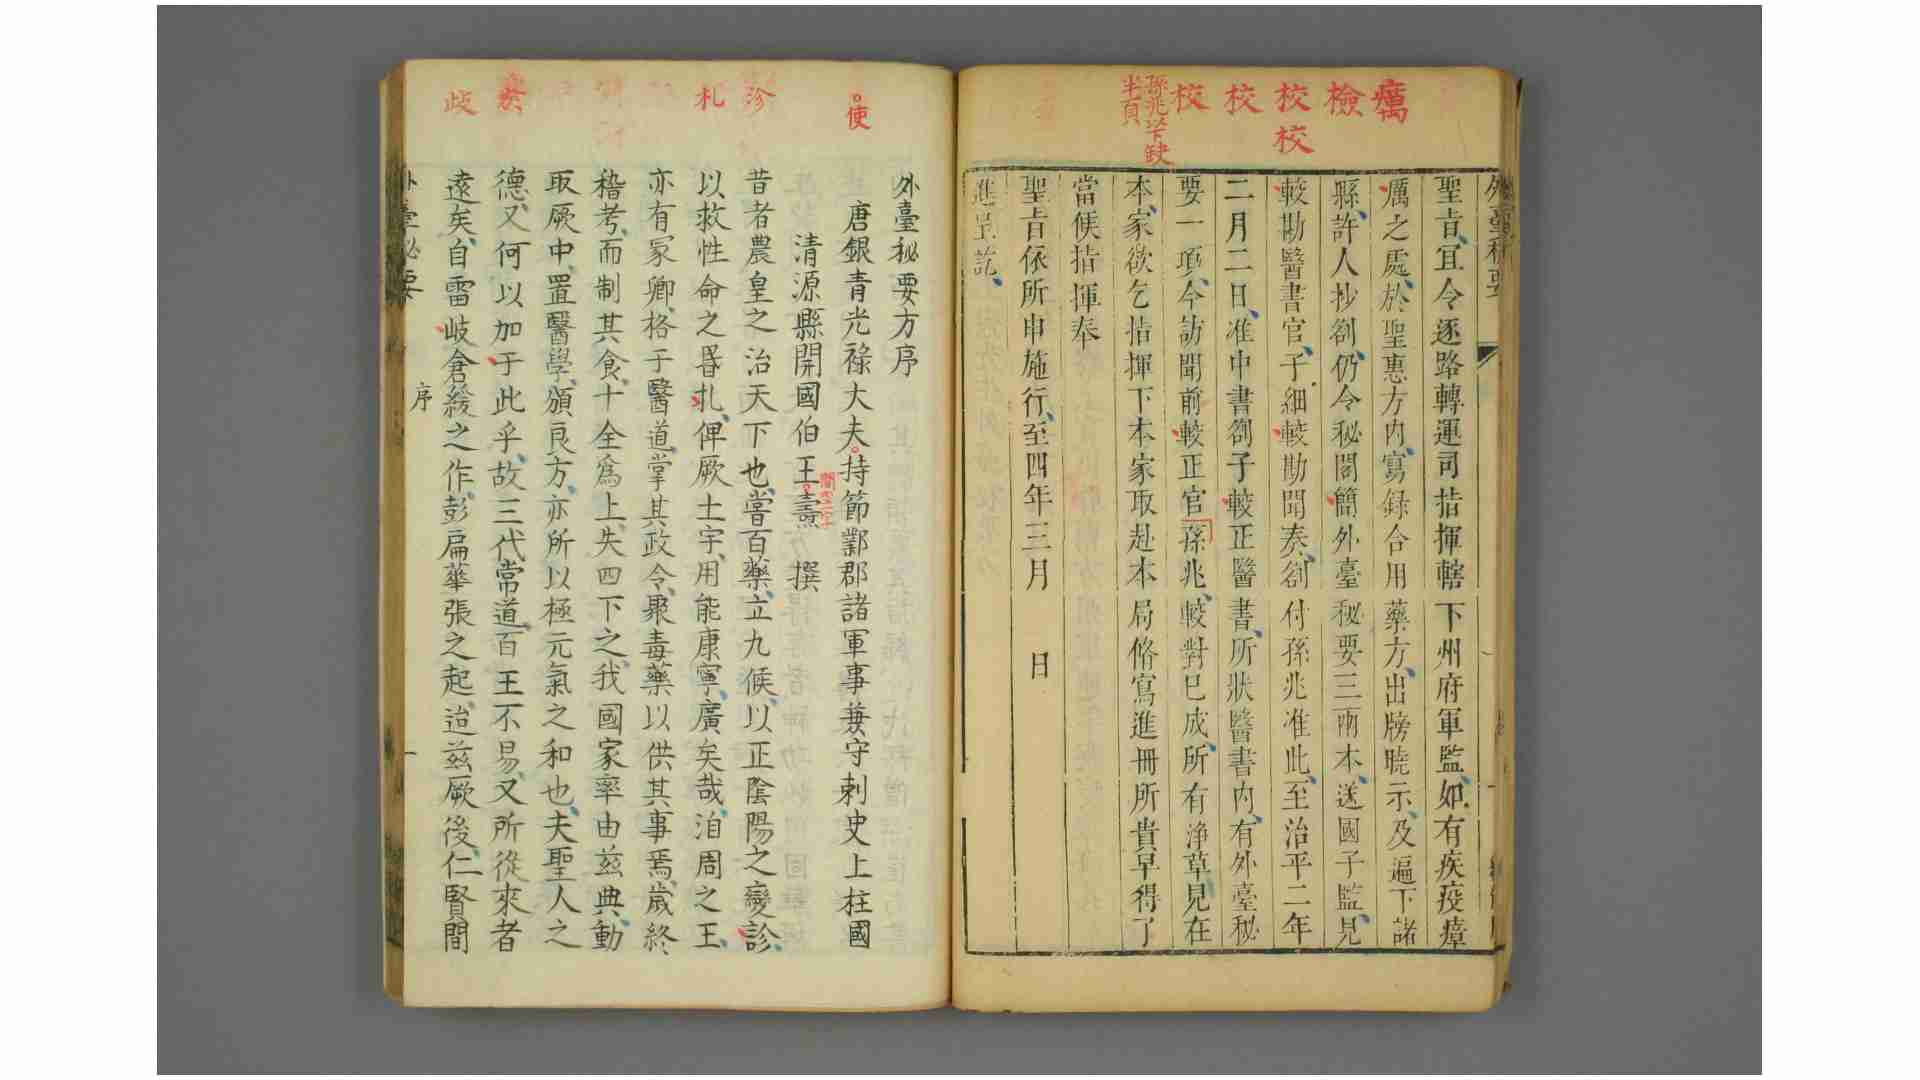 癘
檢
校校
校
校
孫兆以下缺
半頁
外臺秘要
聖旨、宜令逐路轉運司指揮轄下州府軍監、如有疾疫瘴
厲之處、於聖惠方內、寫録合用藥方、出牓曉示、及遍下諸
縣、許人抄劄、仍令秘閣簡外臺秘要三兩本、送國子監、見
較勘醫書官、子細較勘聞奏、劄付孫兆准此、至治平二年
二月二日、准中書劄子較正醫書、所狀醫書內、有外臺秘
要一項、今訪聞前較正官孫兆、較對已成、所有淨草見在
本家、欲乞指揮下本家取赴本局修寫進冊所貴早得了
當候指揮奉
聖旨依所申施行、至四年三月　日
進呈訖、
使
診
札
歧
外臺秘要方序
唐銀青光祿大夫持節鄴郡諸軍事兼守刺史上柱國
清源縣開國伯王燾撰
昔者農皇之治天下也、嘗百藥、立九候、以正陰陽之變診、
以救性命之昬札、俾厥土宇、用能康寧、廣矣哉、洎周之王、
亦有冢卿、格于醫道、掌其政令、聚毒藥以供其事焉、歲終
稽考、而制其食、十全爲上、失四下之、我國家率由茲典、動
取厥中、置醫學、頒良方、亦所以極元氣之和也、夫聖人之
德、又何以加于此乎、故三代常道、百王不易、又所從來者
遠矣、自雷岐倉緩之作、彭扁華張之起、迨茲厥後、仁賢間
外臺秘要　序　一